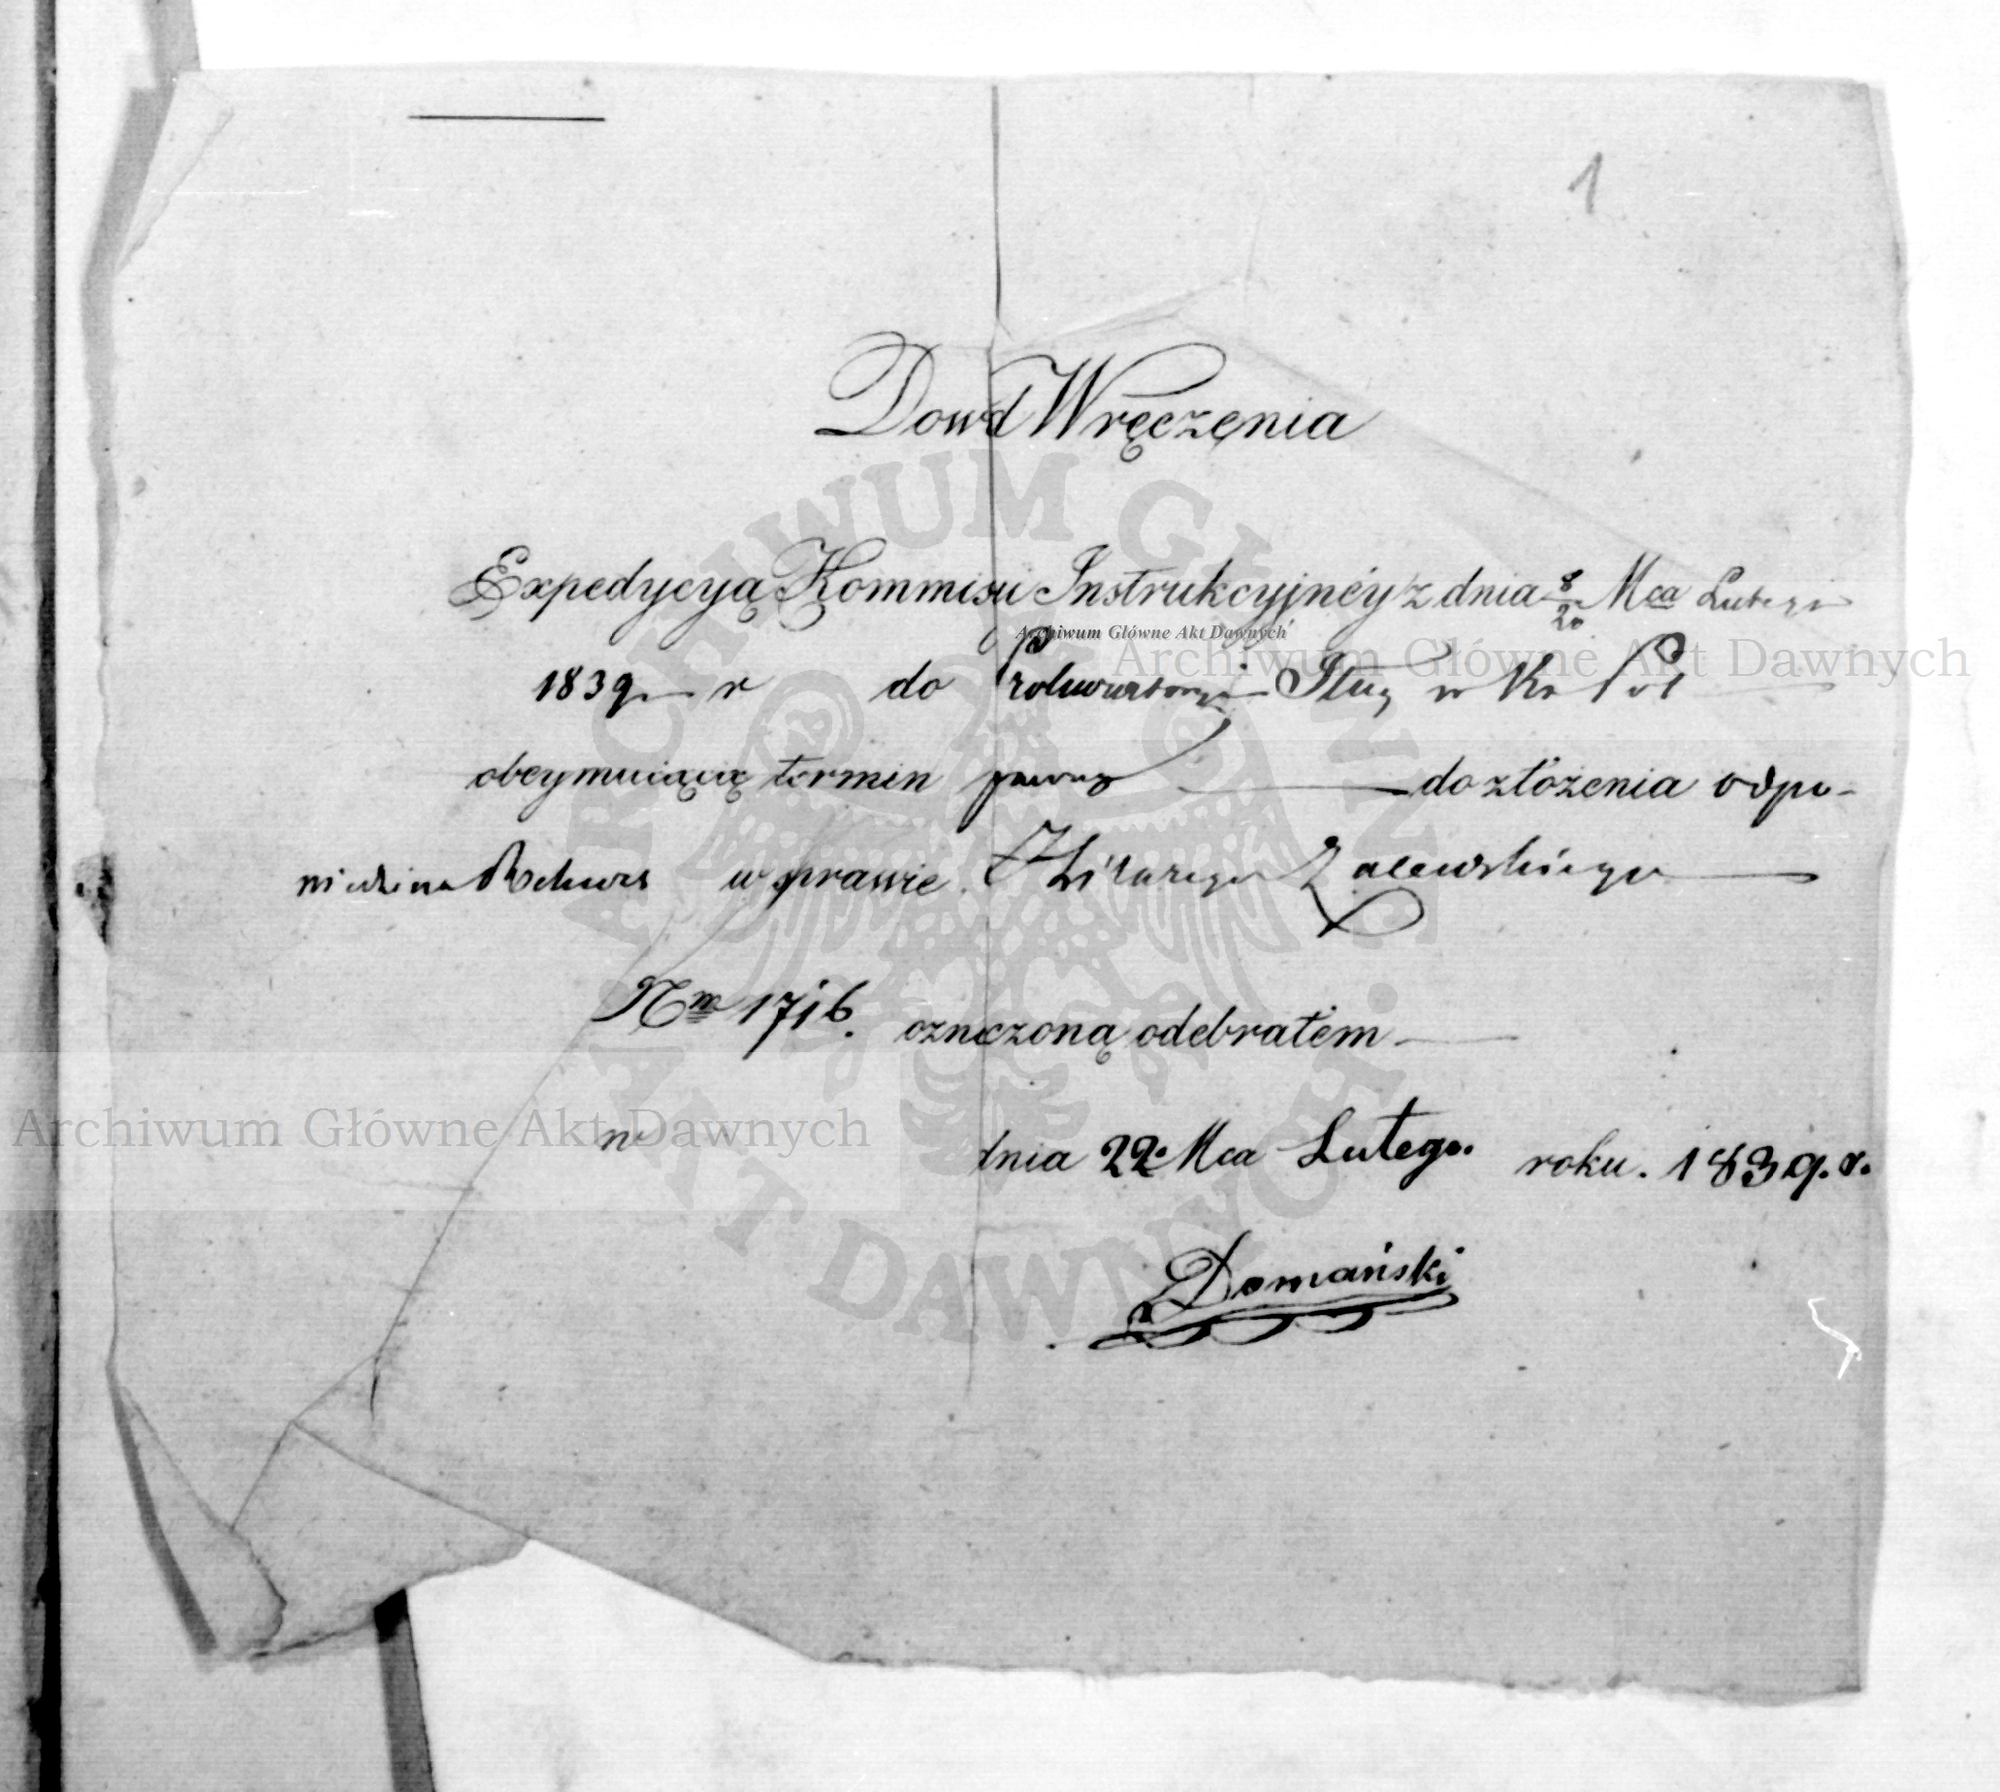 1
Dowód Wręczenia
Expedycyą Kommisii Instrukcyjnéy z dnia 8/20 Mca Lutego
1839 r do Prokuratoryi
obeymuiącą termin do złożenia odpo-
wiedzi na w sprawie Hilarego Zalewskiego
Nrm 1716. oznaczoną odebrałem
w dnia 22. Mca Lutego. roku. 1839. r.
Domański
Archiwum Główne Akt Dawnych
Archiwum Główne Akt Dawnych
Archiwum Główne Akt Dawnych